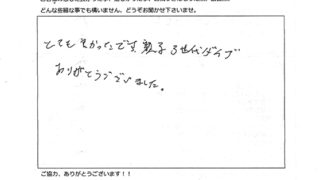 どんな些細な事でも構いません。どうぞお聞かせ下さいませ。
とてもよかったです。親子3世代ダイブ
ありがとうございました。
ご協力、ありがとうございます！！